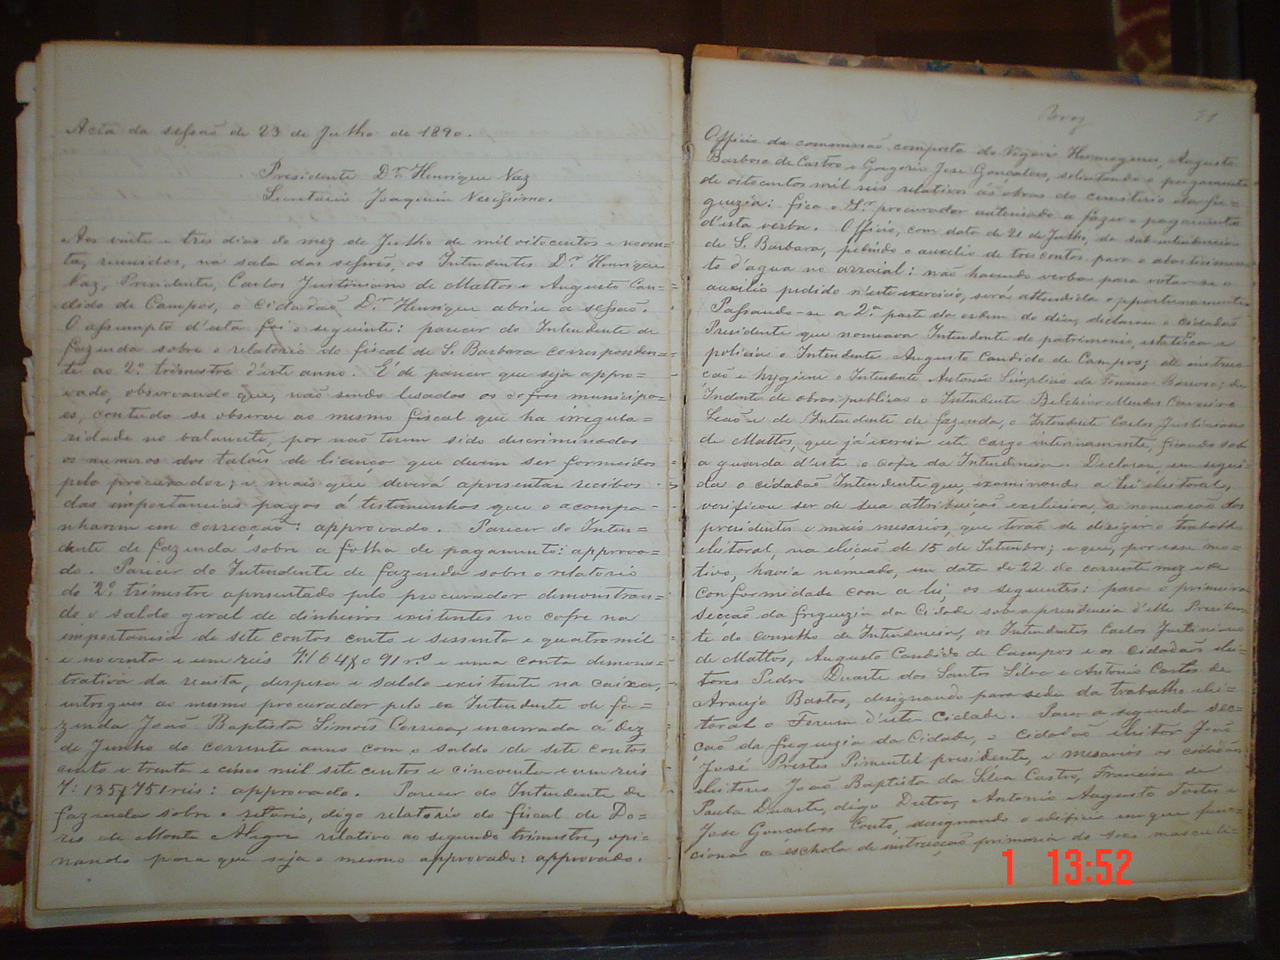 Acta da sessão de 23 de Julho de 1890.
Presidente Dr. Henrique Vaz
Secretario Joaquim Verissimo.
Aos vinte e tres dias do mez de Julho de mil oitocentos e noven=
ta, reunidos, na sala das sessões, os Intendentes Dr. Henrique
Vaz, Presidente, Carlos Justiniano de Mattos e Augusto Can=
dido de Campos, o cidadão Dr. Henrique abriu a sessão.
O assumpto d'esta foi o seguinte: parecer do Intendente de
fazenda sobre o relatorio do fiscal de S. Barbara corresponden=
te ao 2º trimestre d'este anno. É de parecer que seja appro=
vado, observando que, não sendo lesados os cofres municipa=
es, comtudo se observe ao mesmo fiscal que ha irregula=
ridade no balancete, por não terem sido descriminados
os numeros dos talões de licença que devem ser fornecidos
pelo procurador; e mais que deverá apresentar recibos
das importancias pagas á testemunhas que o acompa=
nharem em correcção: approvado. Parecer do Inten=
dente de fazenda sobre a folha de pagamento: approva=
do. Parecer do Intendente de fazenda sobre o relatorio
do 2º trimestre apresentado pelo procurador demonstran=
do o saldo geral de dinheiros existentes no cofre na
importancia de sete contos cento e sessenta e quatro mil
e noventa e um reis 7:164$091 rs e uma conta demons=
trativa da receita, despesa e saldo existente na caixa,
entregues ao mesmo procurador pelo ex Intendente de fa=
zenda João Baptista Simões Correa, encerrada a dez
de Junho do corrente anno com o saldo de sete contos
cento e trenta e cinco mil sete centos e cincoenta e um reis
7:135$751 reis: approvado. Parecer do Intendente de
fazenda sobre o digo relatorio do fiscal de Do=
res de Monte Alegre relativo ao segundo trimestre, opi=
nando para que seja o mesmo approvado: approvado.
21
Officio da commissão composta do Vigario Hermogenes, Augusto
Barbosa de Castro e Gregorio José Gonsalves, solicitando o pagamento
de oitocentos mil reis relativos ás obras do cemiterio da fre=
guezia: fica o Sr. procurador autorisado a fazer o pagamento
d'esta verba. Officio, com data de 21 de Julho, da sub-intendencia
de S. Barbara, pedindo o auxilio de tres contos para o abastecimen=
to d'agua no arraial: não havendo verba para votar-se o
auxilio pedido n'este exercicio, será attendida opportunamente.
Passando-se a 2ª parte da ordem do dia, declarou o cidadão
Presidente que nomeava Intendente de patrimonio, estatistica e
policia o Intendente Augusto Candido de Campos; de instruc=
ção e hygiene o Intendente Antonio Simplicio da
Indente de obras publicas o Intendente Belchior Mendes
e de Intendente de fazenda, o Intendente Carlos Justiniano
de Mattos, que já exercia este cargo interinamente, ficando sob
a guarda d'este o cofre da Intendencia. Declarou, em segui=
da o cidadão Intendente que, examinando a lei eleitoral,
verificou ser de sua attribuição exclusiva a nomeação dos
presidentes e mais mesarios, que terão de dirigir o trabalho
eleitoral, na eleição de 15 de Setembro; e que, por esse mo=
tivo, havia nomeado, em data de 22 do corrente mez e de
conformidade com a lei, os seguintes: para a primeira
secção da freguezia da Cidade sob a presidencia d'elle Presiden=
te do conselho de Intendencia, os Intendentes Carlos Justiniano
de Mattos, Augusto Candido de Campos e os cidadãos elei=
tores Pedro Duarte dos Santos Silva e Antonio Carlos de
Araujo Bastos, designando para sede do trabalho elei=
toral o Forum d'esta Cidade. Para a segunda sec=
ção da freguezia da Cidade, o cidadão eleitor João
José Prestes Pimentel presidente, e mesarios os cidadãos
eleitores João Baptista da Silva Castro, Francisco de
Paula Duarte, digo Dutra, Antonio Augusto Fortes e
José Gonsalves Couto, designando o edificio em que func=
ciona a eschola de instrucção primaria do sexo masculi=
1 13:52